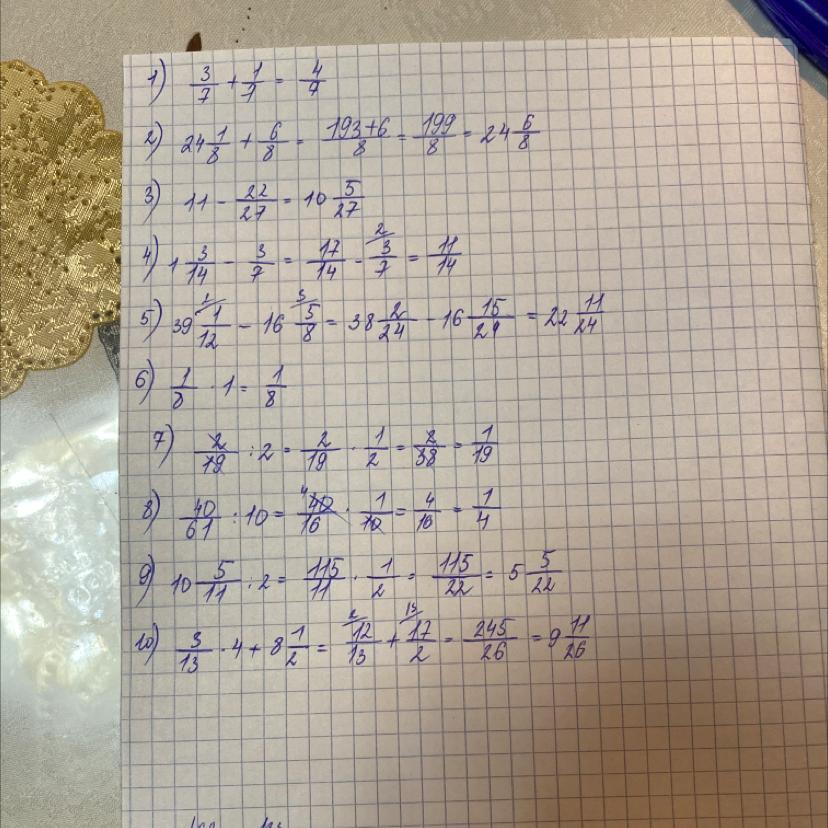 1) 3/7 + 1/7 = 4/7
2) 24 1/8 + 6/8 = 193+6/8 = 199/8 = 24 6/8
3) 11 - 22/27 = 10 5/27
4) 1 3/14 - 3/7 = 17/14 - 3/7 ² = 11/14
5) 39 1/12 - 16 5/8 ³ = 38 2/24 - 16 15/24 = 22 11/24
6) 1/8 · 1 = 1/8
7) 2/19 : 2 = 2/19 · 1/2 = 2/38 = 1/19
8) 40/61 : 10 = 40/16 ⁴ · 1/10 = 4/16 = 1/4
9) 10 5/11 : 2 = 115/11 · 1/2 = 115/22 = 5 5/22
10) 3/13 · 4 + 8 1/2 = 12/13 ² + 17/2 ¹³ = 245/26 = 9 11/26